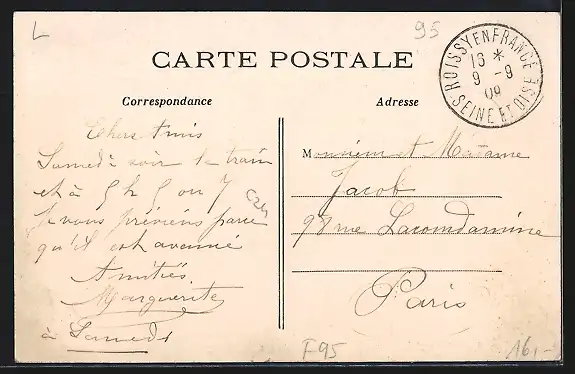 L
95
CARTE POSTALE
ROISSY EN FRANCE
SEINE ET OISE
13 *
9 - 9
09
Correspondance
Adresse
Chers Amis
Samedi soir le train
est à 5 h 5 ou 7
Je vous préviens parce
qu'il est avancé
Amitiés
Marguerite
à Samedi
C24
Monsieur et Madame
Jacob
98 rue Lacondamine
Paris
F95
16,-